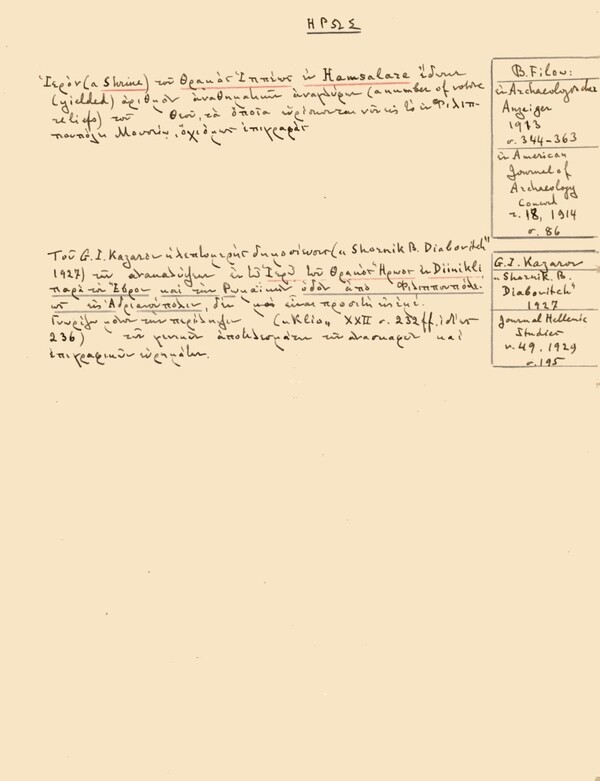 ΗΡΩΣ
Ἱερὸν (a Shrine) τοῦ Θρακὸς Ἱππέως ἐν Hamsalare ἔδωκε
(yielded) ἀριθμὸν ἀναθηματικῶν ἀναγλύφων (a number of votive
reliefs) τοῦ Θεοῦ, τὰ ὁποῖα εὑρίσκονται νῦν εἰς τὸ ἐν Φιλιπ-
πουπόλει Μουσεῖον, ἐπιγραφάς
B. Filow:
in Archaeologischer
Anzeiger
1913
σ. 344-363
in American
Journal of
Archaeology
τ. 18, 1914
σ. 86
Τοῦ G. I. Kazarov ἡ λεπτομερὴς δημοσίευσις („Sbornik B. Diabovitch"
1927) τῶν ἀνακαλύψεων ἐν τῷ Ἱερῷ τοῦ Θρακὸς Ἥρωος ἐν Diinikli
παρὰ τὸν Ἕβρον καὶ τὴν Ρωμαϊκὴν ὁδὸν ἀπὸ Φιλιππουπόλε-
ως εἰς Ἀδριανούπολιν, δὲν μοὶ εἶναι προσιτὴ
Γνωρίζω μόνον τὴν περίληψιν („Klio„ XXII σ. 232 ff. ἰδίως
236) τῶν γενικῶν ἀποτελεσμάτων τῶν ἀνασκαφῶν καὶ
ἐπιγραφικῶν εὑρημάτων.
G. I. Kazarov
„Sbornik B.
Diabovitch"
1927
Journal Hellenic
Studies
v. 49. 1929
σ. 195